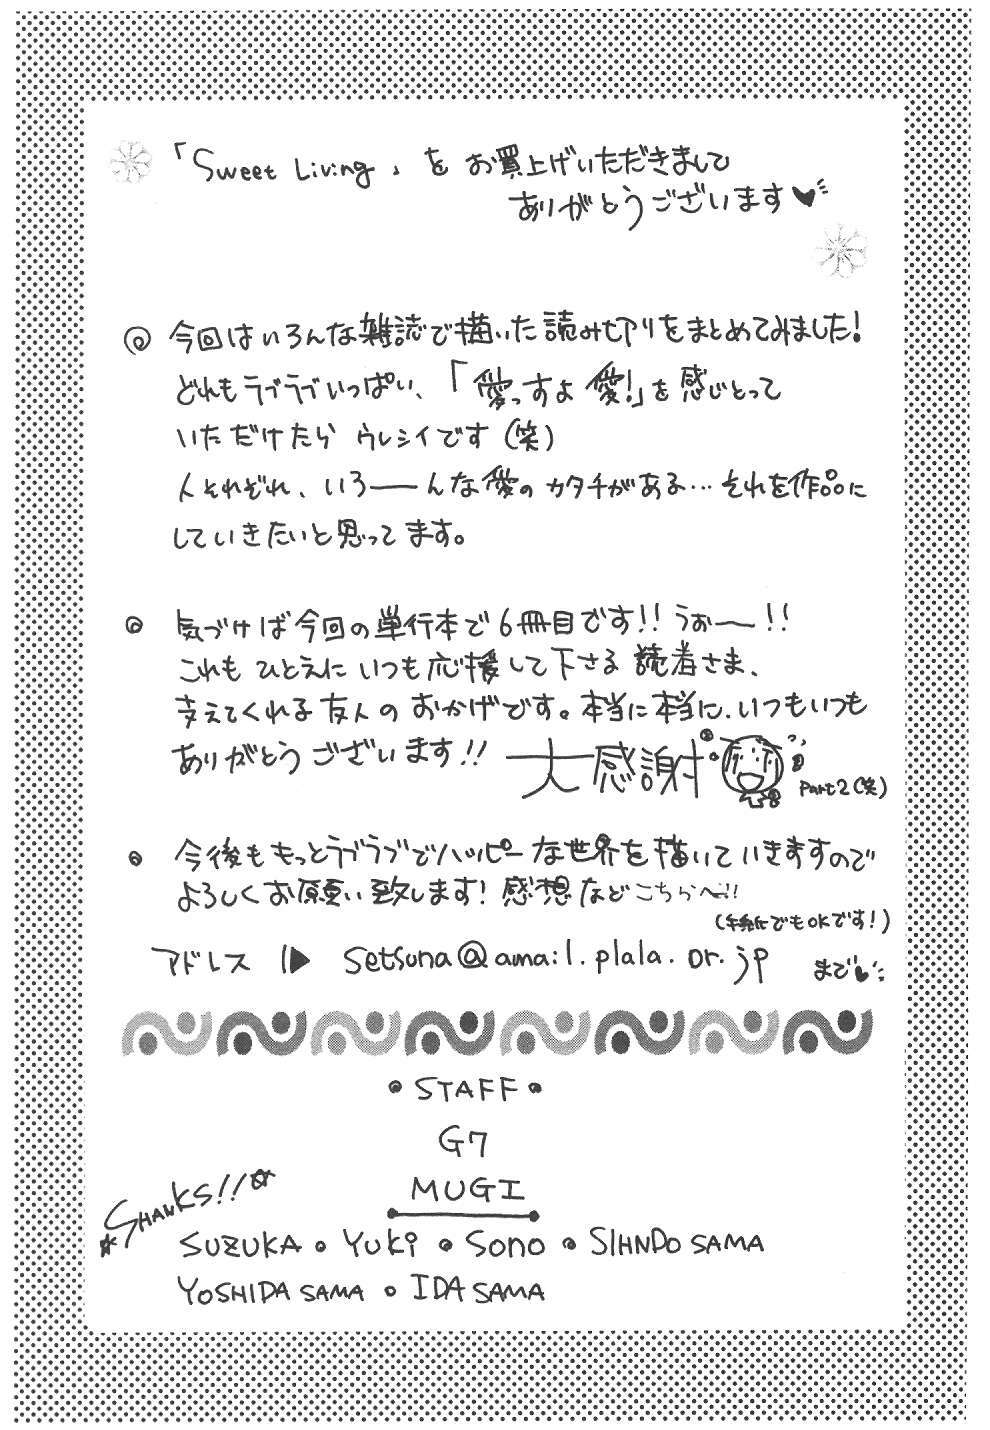 「Sweet Living」を お買上げいただきまして
ありがとうございます♥
◎ 今回はいろんな雑誌で描いた読み切りをまとめてみました!
どれもラブラブいっぱい、「愛っすよ 愛!」を感じとって
いただけたら ウレシイです(笑)
人それぞれ、いろーーんな愛のカタチがある…それを作品に
していきたいと思ってます。
◎ 気づけば今回の単行本で6冊目です!!うおー!!
これも ひとえに いつも応援して下さる 読者さま、
支えてくれる友人の おかげです。本当に本当に、いつもいつも
ありがとうございます!! 大感謝 Part2(笑)
◎ 今後も もっとラブラブでハッピーな世界を描いていきますので
よろしくお願い致します! 感想など こちらへ!!
(手紙でもOKです!)
アドレス ▶ setsuna@amail.plala.or.jp まで♥
・STAFF・
G7
MUGI
☆SHANKS!!☆
SUZUKA・YUKi・SONO・SIHNDO SAMA
YOSHIDA SAMA・IDA SAMA